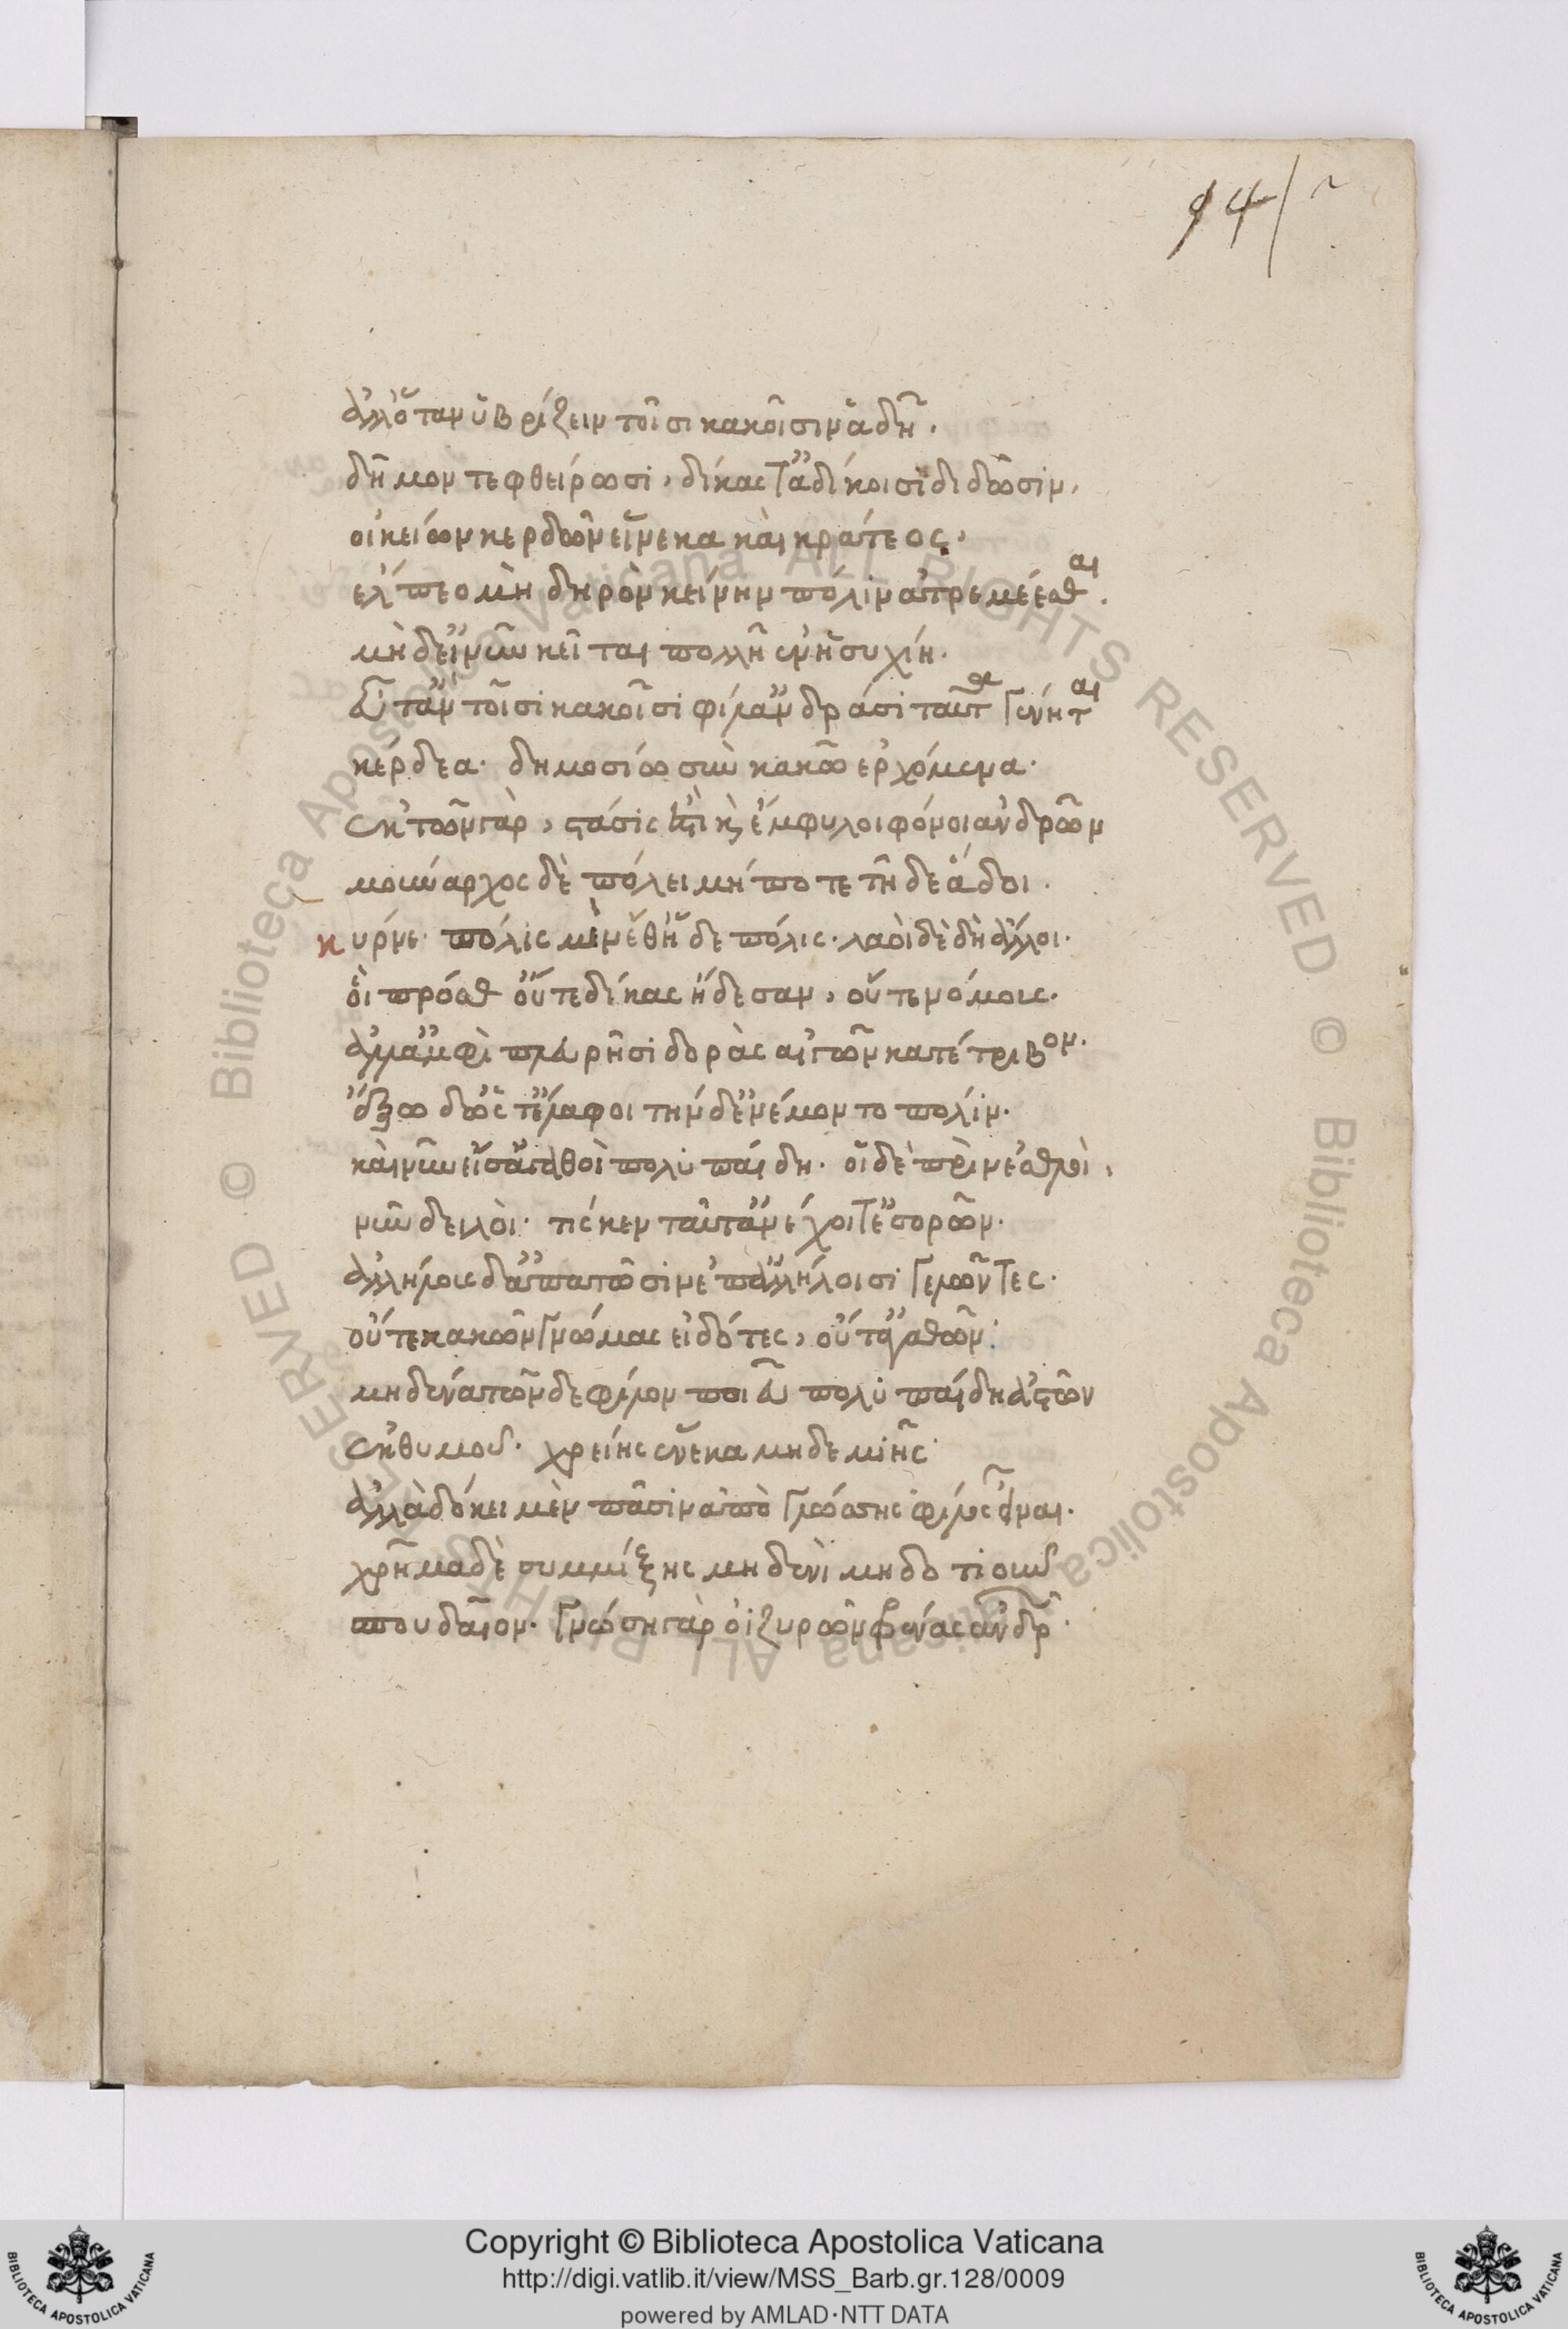 94/2
ἀλλ' ὅταν ὑβρίζειν τοῖσι κακοῖσιν ἅδῃ.
δῆμον τε φθείρωσι, δίκας τ' ἀδίκοισι διδῶσιν,
οἰκείων κερδῶν εἵνεκα καὶ κράτεος,
ἔλπεο μὴ δηρὸν κείνην πόλιν ἀτρεμέεσθαι.
μὴ δ' εἰ νῦν κεῖται πολλῇ ἐν ἡσυχίη.
εὖτ' ἂν τοῖσι κακοῖσι φίλ' ἀνδράσι ταῦτα γένηται
κέρδεα. δημοσίω σὺν κακῶ ἐρχόμενα.
ἐκ τῶν γὰρ, στάσις ἐστὶ καὶ ἔμφυλοι φόνοι ἀνδρῶν
μούναρχος δὲ πόλει μήποτε τῆδε ἅδοι.
κύρνε. πόλις μὲν ἔθ' ἥδε πόλις. λαοὶ δὲ δὴ ἄλλοι.
οἳ πρόσθ' οὔτε δίκας ἤδεσαν, οὔτε νόμους.
ἀλλ' ἀμφὶ πλευρῆσι δορὰς αἰγῶν κατέτριβον.
ἔξω δ' ὥς τ' ἔλαφοι τήνδ' ἐνέμοντο πόλιν.
καὶ νῦν εἴσ' ἀγαθοὶ πολυπαίδη. οἱ δὲ πρὶν ἐσθλοὶ,
νῦν δειλοὶ. τίς κεν ταῦτ' ἀνέχοιτ' ἐσορῶν.
ἀλλήλους δ' ἀπατῶσιν ἐπ' ἀλλήλοισι γελῶντες.
οὔτε κακῶν γνώμας εἰδότες, οὔτ' ἀγαθῶν.
μηδένα τῶνδε φίλον ποιεῦ πολυπαίδη ἀστῶν
ἐκ θυμοῦ. χρείης οὕνεκα μηδεμιῆς.
ἀλλὰ δόκει μὲν πᾶσιν ἀπὸ γλώσσης φίλος εἶναι.
χρῆμα δὲ συμμίξῃς μηδενὶ μηδοτιοῦν
σπουδαῖον. γνώσῃ γὰρ οἰζυρῶν φρένας ἀνδρῶν.
© Biblioteca Apostolica Vaticana ALL RIGHTS RESERVED © Biblioteca Apostolica Vaticana ALL RIGHTS RESERVED
BIBLIOTECA APOSTOLICA VATICANA
Copyright © Biblioteca Apostolica Vaticana
http://digi.vatlib.it/view/MSS_Barb.gr.128/0009
powered by AMLAD·NTT DATA
BIBLIOTECA APOSTOLICA VATICANA